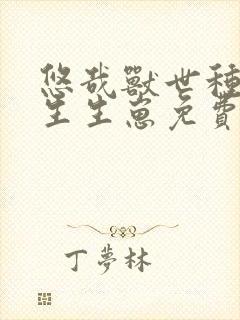 悠哉獸世種
生生崽免費
丁夢林